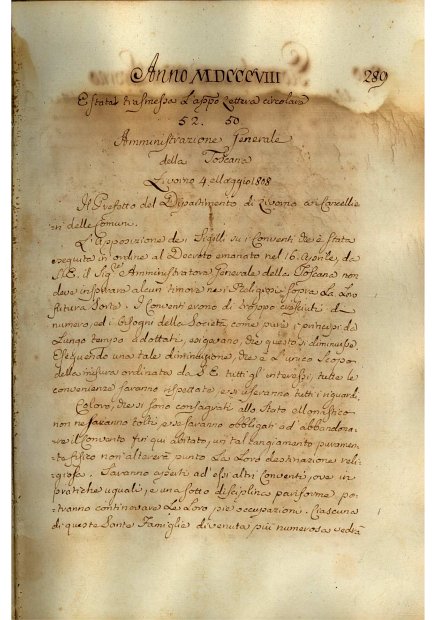 Anno MDCCCVIII
289
È stata trasmessa l'appo Lettera circolare
52. 50
Amministrazione Generale
della Toscana
Livorno 4 Maggio 1808
Il Prefetto del Dipartimento di Livorno ai Cancellie
ri delle Comuni.
L'Apposizione de i Sigilli su i Conventi che è stata
eseguita in ordine al Decreto emanato nel 16. Aprile, da
S.E. il Sigre Amministratore Generale della Toscana non
deve inspirare alcun timore ne i Religiosi sopra la Loro
futura Sorte. I Conventi erono di troppo
numero, ed i bisogni della Società, come pure i principi da
Lungo tempo addottati, esigevano, che questo si diminuisse.
Eseguendo una tale diminuzione, che è l'unico Scopo
della misura ordinata da S.E. tutti gl' interessi, tutte le
convenienze saranno rispettate, e si useranno tutti i riguardi.
Coloro, che si sono consagrati allo Stato Monastico
non ne saranno tolti, e se saranno obbligati ad abbandona-
re il Convento fin qui abitato, un tal cangiamento puramen-
te fisico non altererà punto la Loro destinazione reli-
giosa. Saranno aperti ad essi altri Conventi, ove in
pratiche uguali, e una sotto disciplina pariforme po-
tranno continovare Le Loro pie occupazioni. Ciascuna
di queste Sante Famiglie divenuta più numerosa vedrà